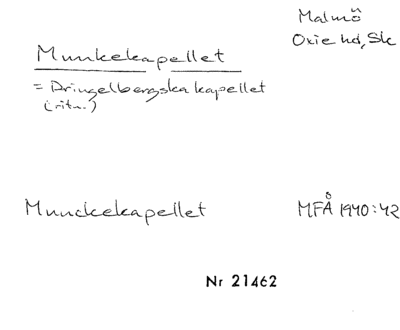 Malmö
Oxie hd, Sk
Munkekapellet
= Dringelbergska kapellet
(ritn.)
Munckekapellet
MFÅ 1940:42
Nr 21462